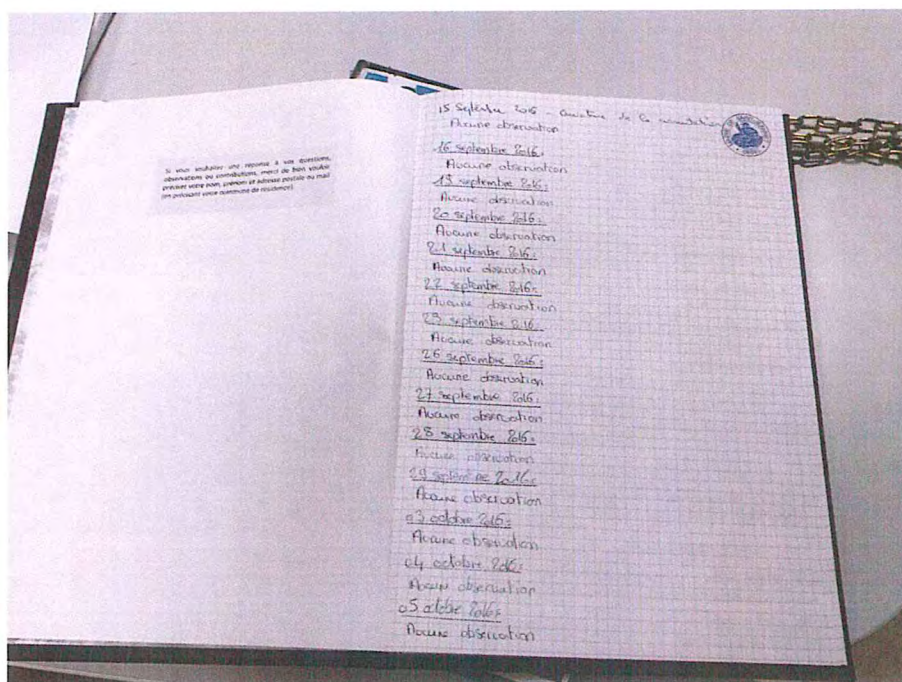 Si vous souhaitez une réponse à vos questions,
observations ou contributions, merci de bien vouloir
préciser votre nom, prénom et adresse postale ou mail
(en précisant votre commune de résidence).
15 Septembre 2016 - Ouverture de la consultation
Aucune observation
16 septembre 2016:
Aucune observation
19 septembre 2016:
Aucune observation
20 septembre 2016:
Aucune observation
21 septembre 2016:
Aucune observation
22 septembre 2016:
Aucune observation
23 septembre 2016:
Aucune observation
26 septembre 2016:
Aucune observation
27 septembre 2016:
Aucune observation
28 septembre 2016:
Aucune observation
29 septembre 2016:
Aucune observation
03 octobre 2016:
Aucune observation
04 octobre 2016:
Aucune observation
05 octobre 2016:
Aucune observation